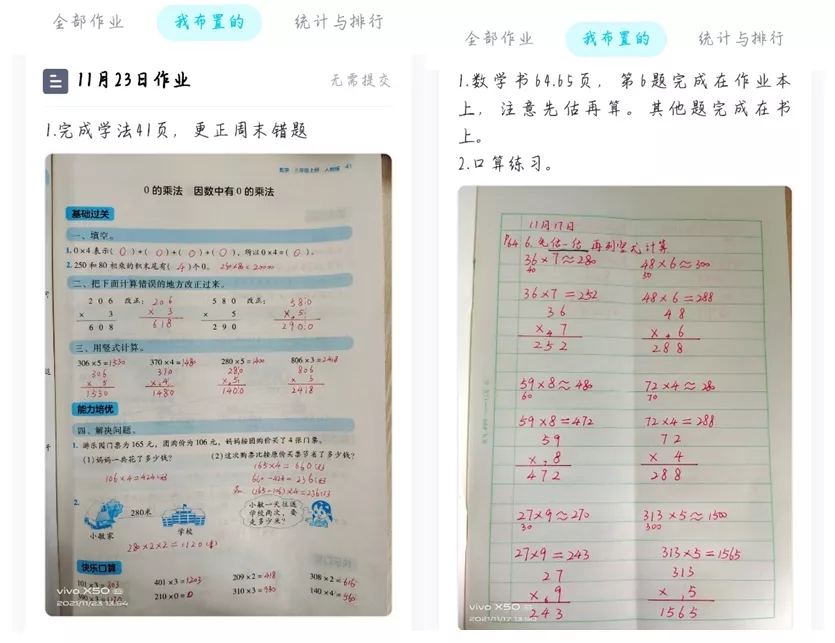 全部作业 我布置的 统计与排行
11月23日作业 无需提交
1.完成学法41页，更正周末错题
数学 三年级上册 人教版 41
0的乘法 因数中有0的乘法
基础过关
一、填空。
1. 0×4表示( 0 )+( 0 )+( 0 )+( 0 )，所以0×4=( 0 )。
2. 250和80相乘的积末尾有( 4 )个0。 250×80=20000
二、把下面计算错误的地方改正过来。
206 改正: 206 580 改正: 580
× 3 × 3 × 5 × 5
608 618 290 2900
三、用竖式计算。
306×5=1530 370×4=1480 280×5=1400 806×3=2418
306 370 280 806
× 5 × 4 × 5 × 3
1530 1480 1400 2418
能力培优
四、解决问题。
1. 游乐园门票为165元，团购价为106元，妈妈按团购价买了4张门票。
(1)妈妈一共花了多少钱? (2)这次购票比按原价买票节省了多少钱?
106×4=424(元) 165×4=660(元)
660-424=236(元)
(165-106)×4=236(元)
2.
280米
小敏家 学校
小敏一天往返学校两次，要走多少米?
280×2×2=1120(米)
快乐口算
101×3=303 401×3=1203 209×2=418 308×2=616
210×0=0 310×3=930 140×4=560
vivo X50
2021/11/23 13:54
全部作业 我布置的 统计与排行
1.数学书64.65页，第6题完成在作业本
上，注意先估再算。其他题完成在书
上。
2.口算练习。
11月17日
P64 6.先估一估 再列竖式计算
36×7≈280 48×6≈300
40 50
36×7=252 48×6=288
36 48
× 7 × 6
252 288
59×8≈480 72×4≈280
60 70
59×8=472 72×4=288
59 72
× 8 × 4
472 288
27×9≈270 313×5≈1500
30 300
27×9=243 313×5=1565
27 313
× 9 × 5
243 1565
vivo X50
2021/11/17 13:50